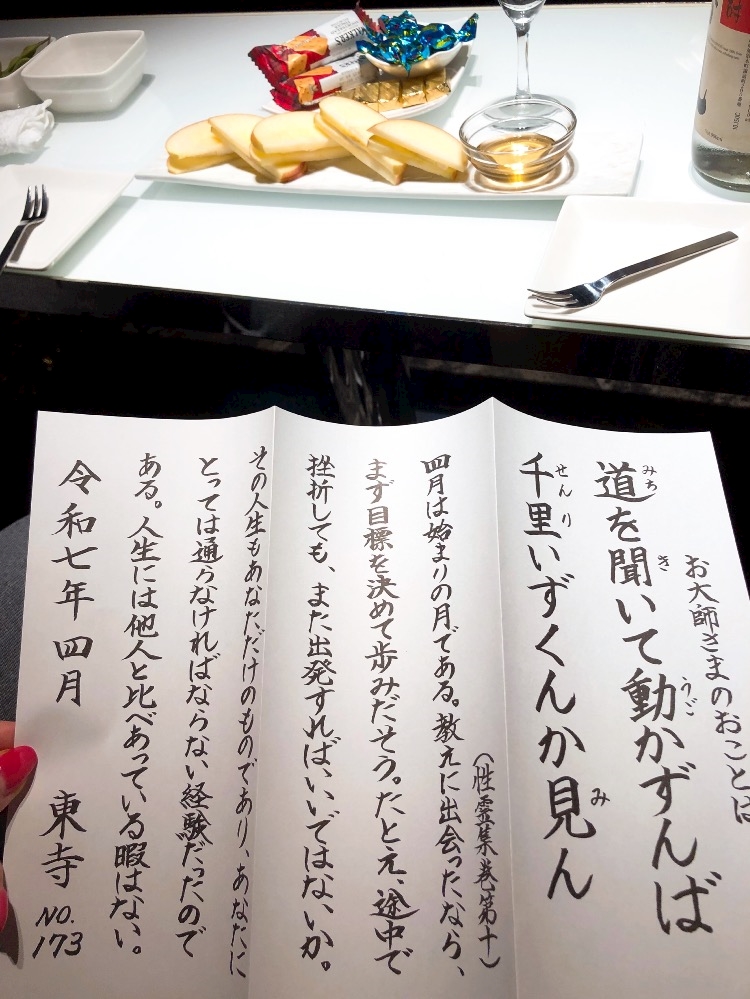 お大師さまのおことば
道を聞いて動かずんば
千里いずくんか見ん
(性霊集巻第十)
四月は始まりの月である。教えに出会ったなら、
まず目標を決めて歩みだそう。たとえ、途中で
挫折しても、また出発すればいいではないか。
その人生もあなただけのものであり、あなたに
とっては通らなければならない経験だったので
ある。人生には他人と比べあっている暇はない。
令和七年四月 東寺 NO.173